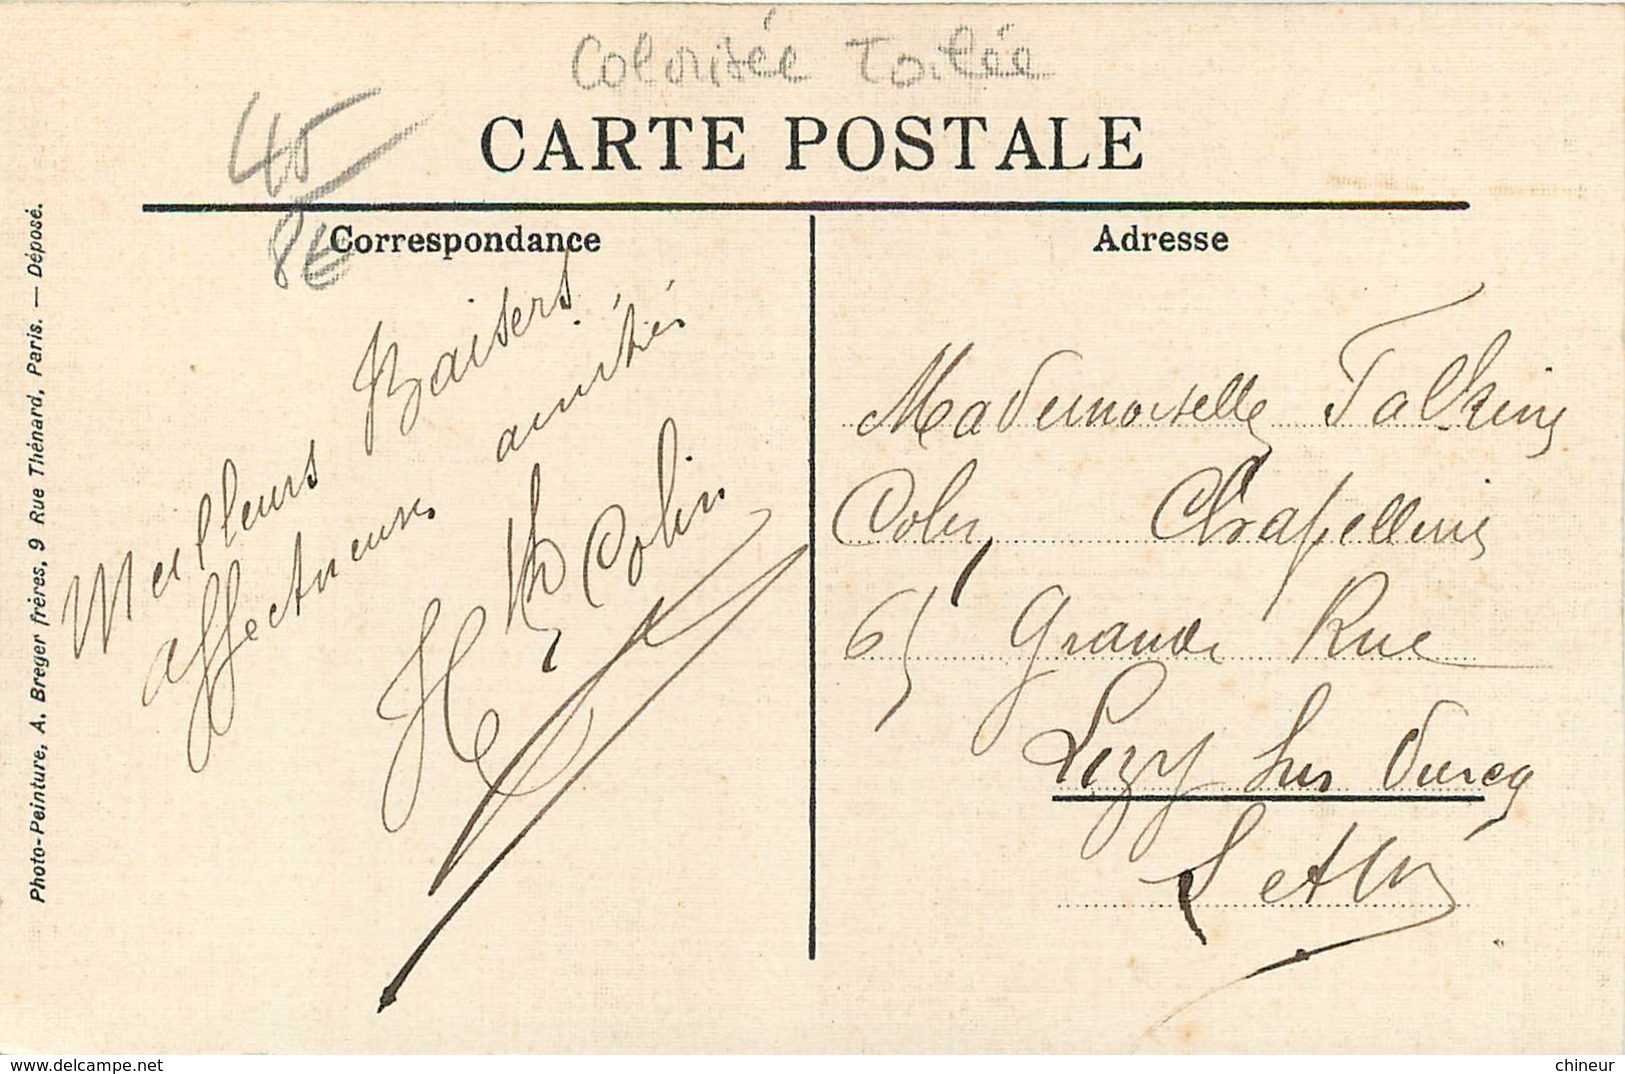 Colorisée Toilée
45
8€
CARTE POSTALE
Correspondance
Adresse
Meilleurs Baisers
affectueuses amitiés
H Colin
Mademoiselle
Chapellerie
65 Grande Rue
Lizy sur Ourcq
S et M
Photo-Peinture, A. Breger frères, 9 Rue Thénard, Paris. — Déposé.
www.delcampe.net
chineur